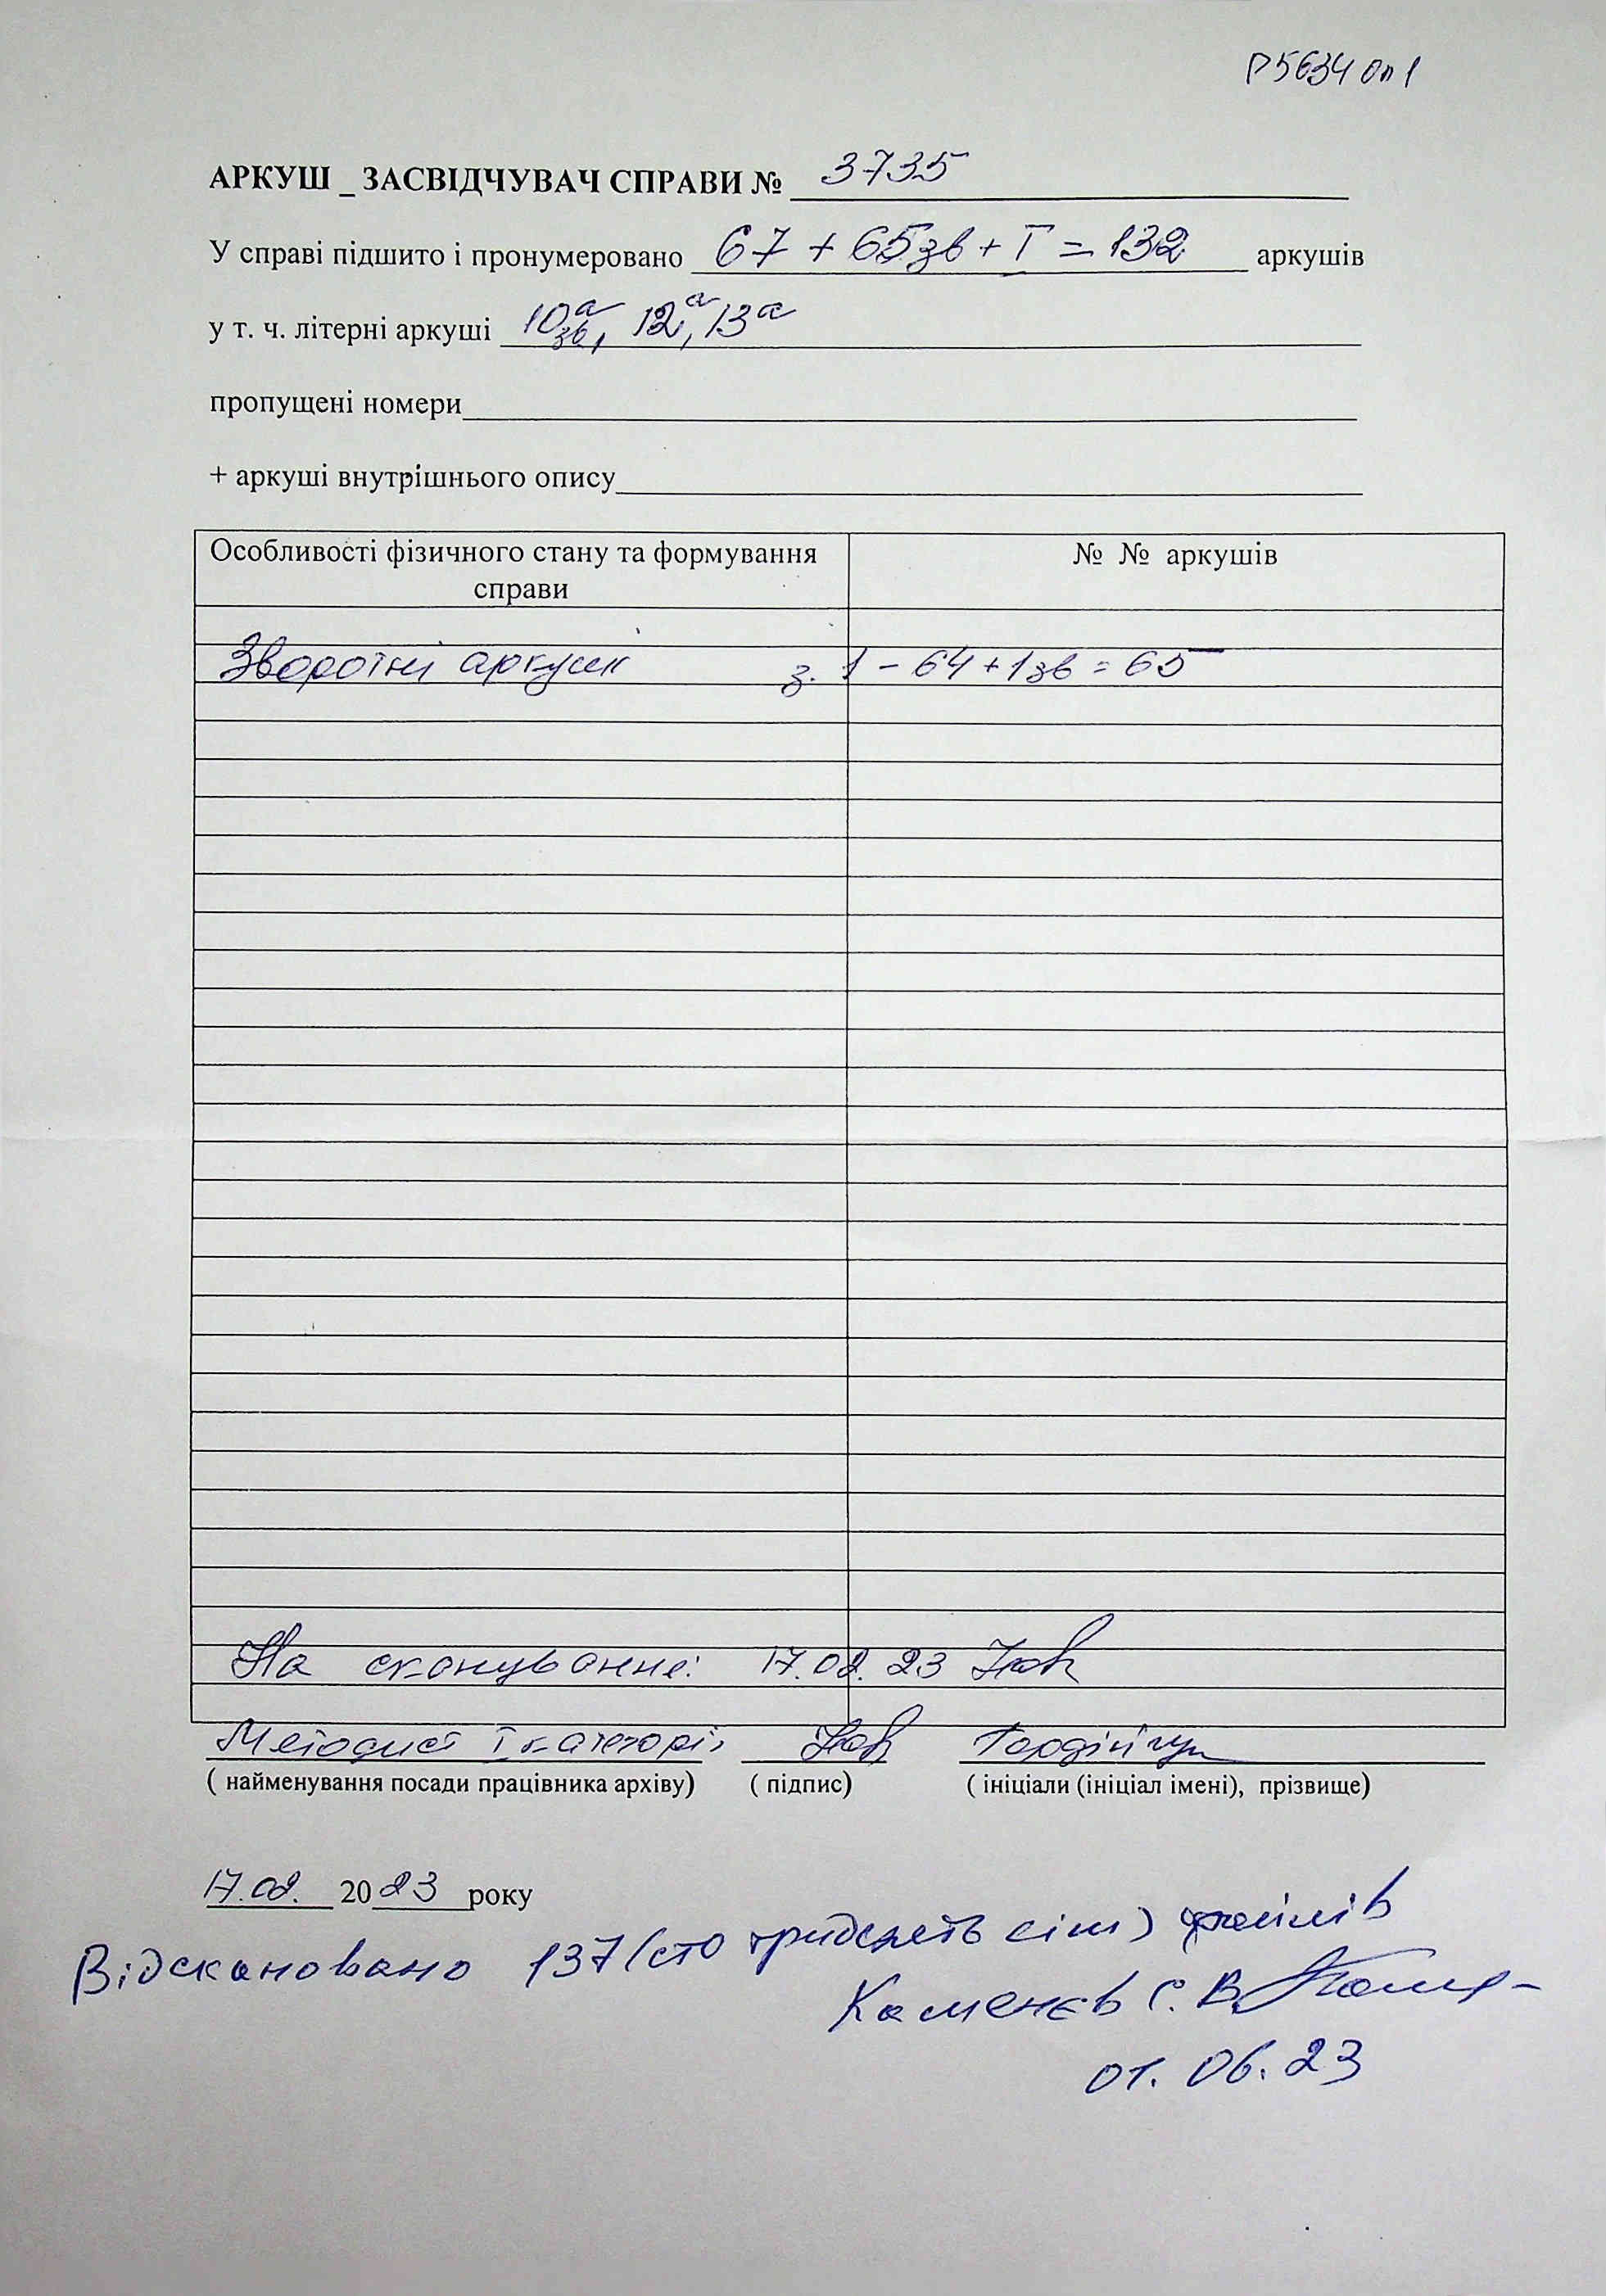 Р5634 оп 1
АРКУШ _ ЗАСВІДЧУВАЧ СПРАВИ № 3735
У справі підшито і пронумеровано 67 + 65зв + I = 132 аркушів
у т. ч. літерні аркуші 10а зв, 12а, 13а
пропущені номери
+ аркуші внутрішнього опису
Особливості фізичного стану та формування справи № № аркушів
Зворотні аркуші з. 1 - 64 + 1зв = 65
На сканування: 17.02.23
Методист I категорії
( найменування посади працівника архіву) ( підпис) ( ініціали (ініціал імені), прізвище)
17.02. 2023 року
Відскановано 137 (сто тридцять сім) файлів
Каменєв С. В.
01.06.23